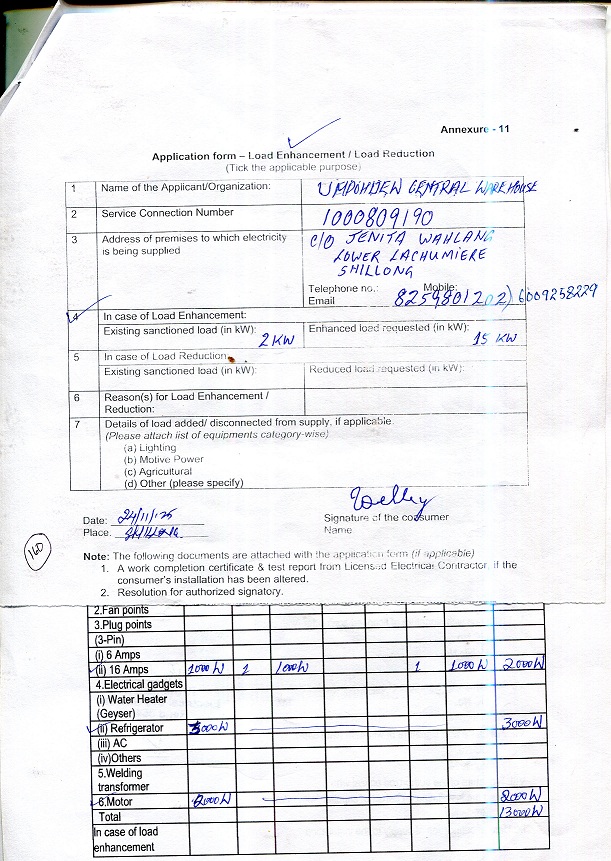 Annexure - 11
Application form – Load Enhancement / Load Reduction
(Tick the applicable purpose)
1 Name of the Applicant/Organization: UMPOHLIEW CENTRAL WAREHOUSE
2 Service Connection Number 1000809190
3 Address of premises to which electricity is being supplied
C/O JENITA WAHLANG
LOWER LACHUMIERE
SHILLONG
Telephone no.: Mobile:
Email 8259801202) 6009258229
4 In case of Load Enhancement:
Existing sanctioned load (in kW): 2 KW Enhanced load requested (in kW): 15 KW
5 In case of Load Reduction
Existing sanctioned load (in kW): Reduced load requested (in kW):
6 Reason(s) for Load Enhancement /
Reduction:
7 Details of load added/ disconnected from supply, if applicable.
(Please attach list of equipments category-wise)
(a) Lighting
(b) Motive Power
(c) Agricultural
(d) Other (please specify)
Date: 24/11/25
Place.
Signature of the consumer
Name
160
Note: The following documents are attached with the application form (if applicable)
1. A work completion certificate & test report from Licensed Electrical Contractor, if the
consumer's installation has been altered.
2. Resolution for authorized signatory.
2.Fan points
3.Plug points
(3-Pin)
(i) 6 Amps
(ii) 16 Amps 1000W 1 1000W 1 1000W 2000W
4.Electrical gadgets
(i) Water Heater
(Geyser)
(ii) Refrigerator 3000W 3000W
(iii) AC
(iv)Others
5.Welding
transformer
6.Motor 8000W 8000W
Total 13000W
In case of load
enhancement